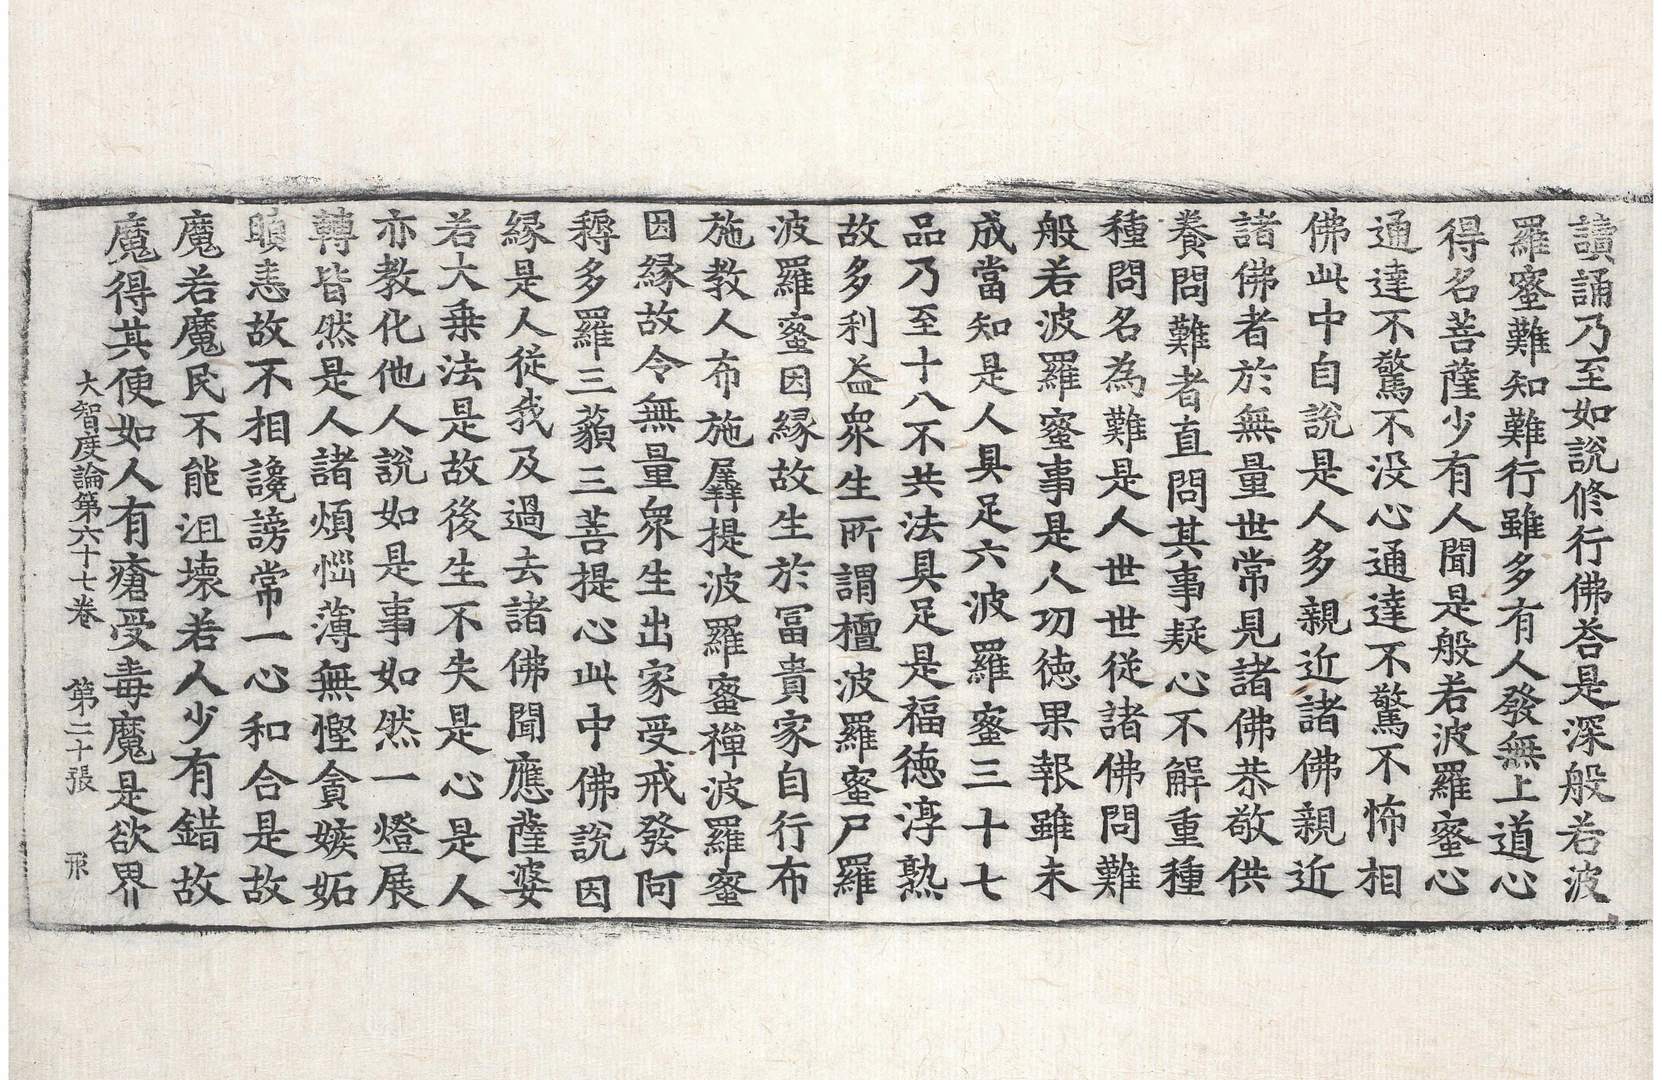 讀誦乃至如說修行佛荅是深般若波
羅蜜難知難行雖多有人發無上道心
得名菩薩少有人聞是般若波羅蜜心
通達不驚不没心通達不驚不怖相
佛此中自說是人多親近諸佛親近
諸佛者於無量世常見諸佛恭敬供
養問難者直問其事疑心不解重種
種問名為難是人世世從諸佛問難
般若波羅蜜事是人功徳果報雖未
成當知是人具足六波羅蜜三十七
品乃至十八不共法具足是福徳淳熟
故多利益衆生所謂檀波羅蜜尸羅
波羅蜜因縁故生於冨貴家自行布
施教人布施羼提波羅蜜禪波羅蜜
因縁故令無量衆生出家受戒發阿
耨多羅三藐三菩提心此中佛說因
縁是人従我及過去諸佛聞應薩婆
若大乗法是故後生不失是心是人
亦教化他人說如是事如然一燈展
轉皆然是人諸煩惱薄無慳貪嫉妬
瞋恚故不相讒謗常一心和合是故
魔若魔民不能沮壊若人少有錯故
魔得其便如人有瘡受毒魔是欲界
大智度論第六十七卷 第二十張 形